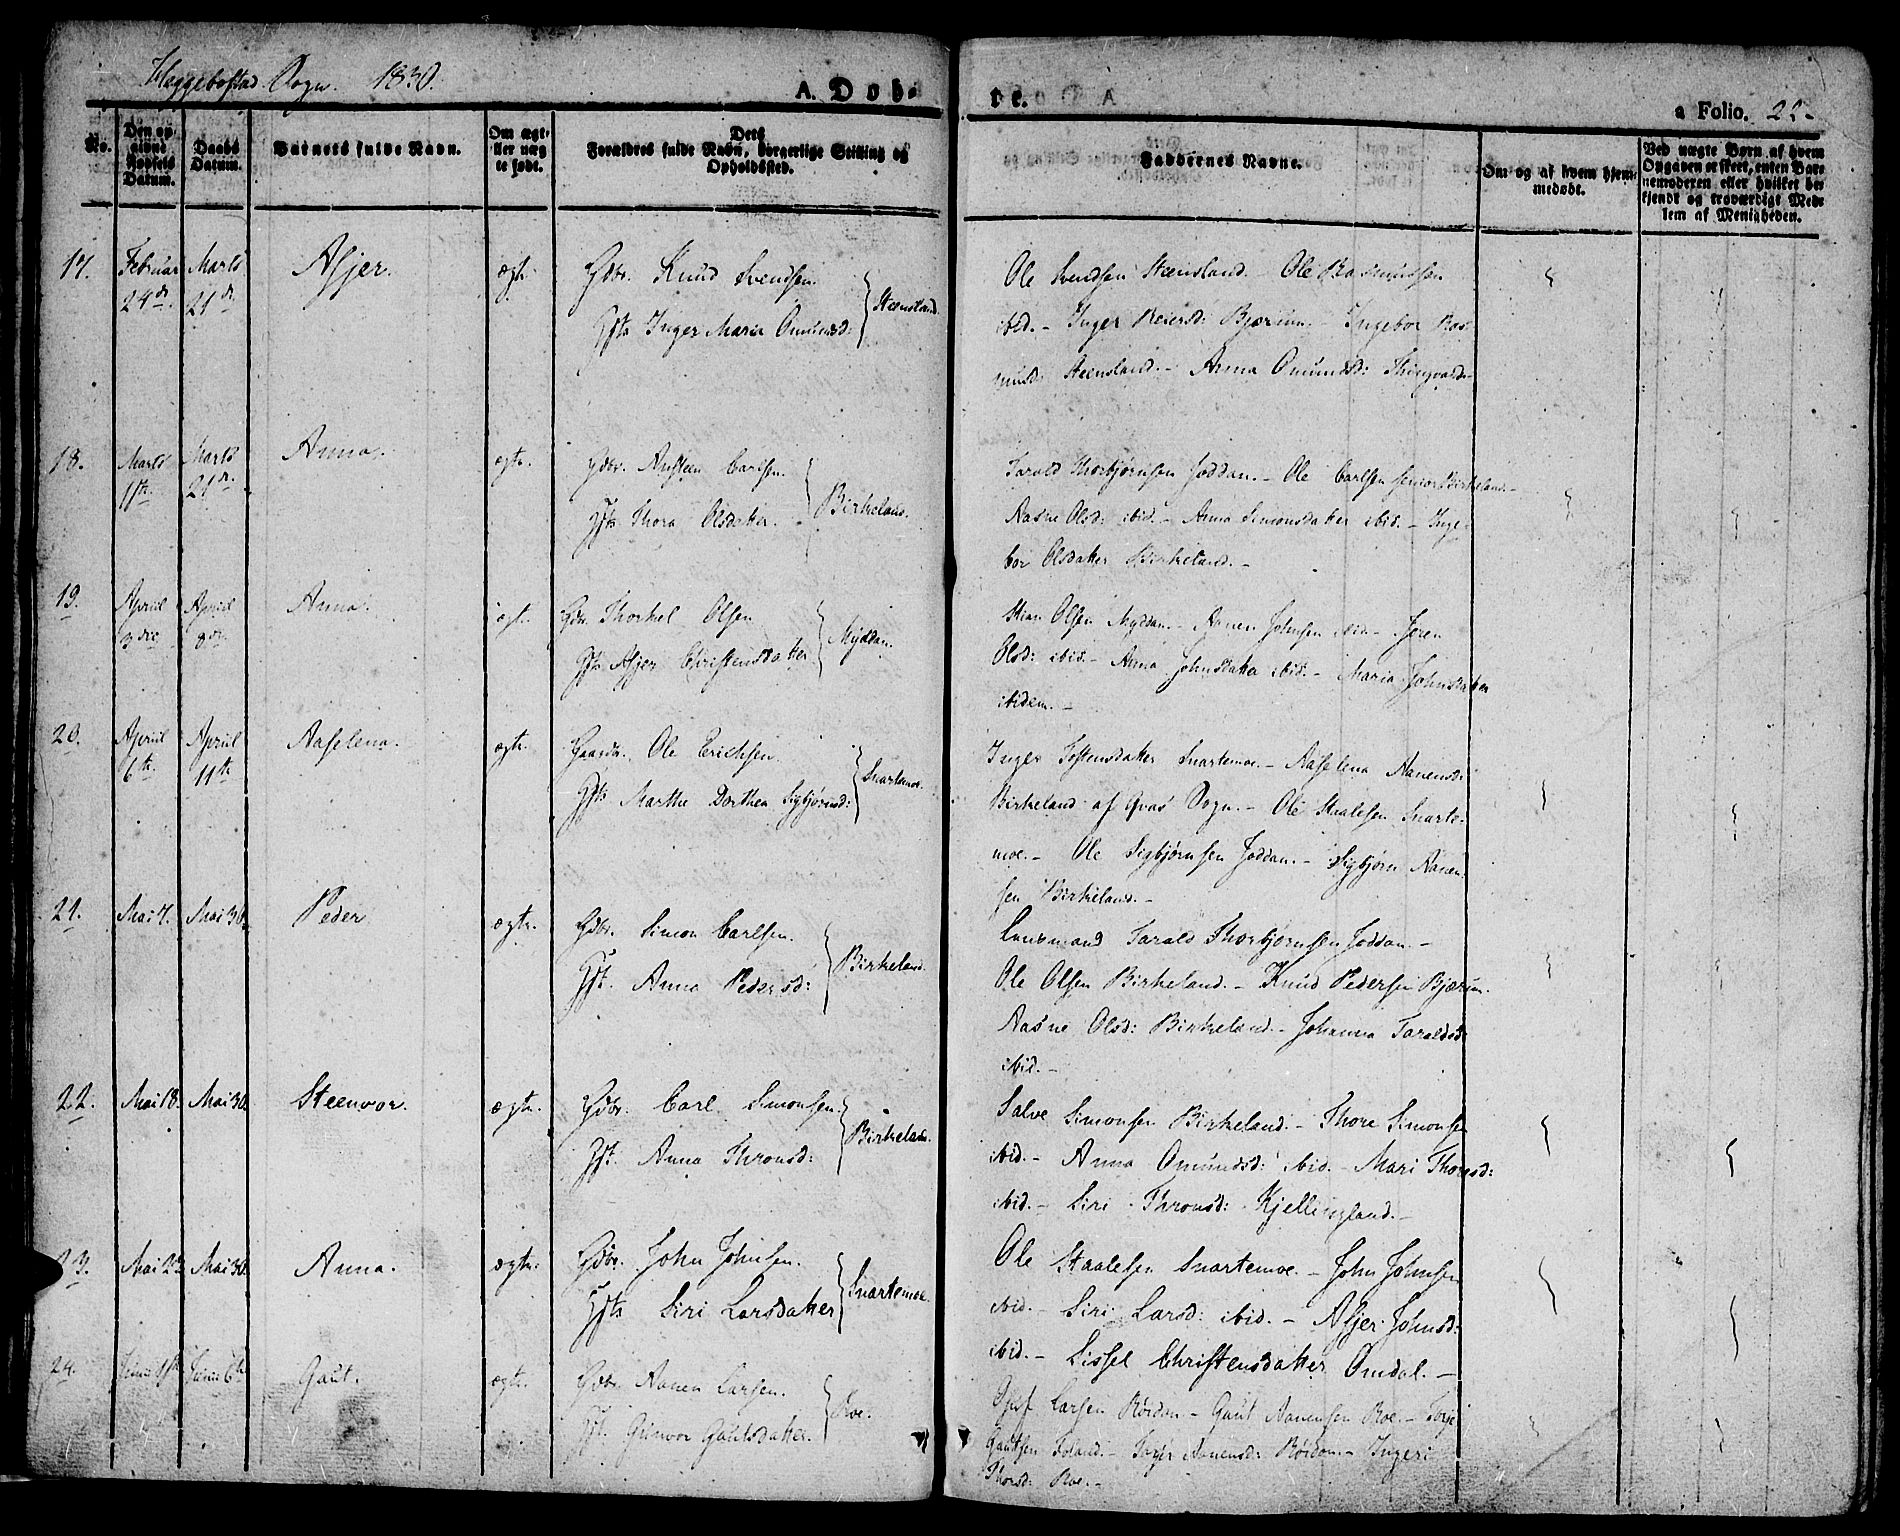 Heggebostad Sogn. 1830.
A. Døb-
te.
a Folio. 22.
No.
Den opgivne Fødsels Datum.
Daabs Datum.
Barnets fulde Navn.
Om ægte eller uægte født.
Dets Forældres fulde Navn, borgerlige Stilling og Opholdssted.
Faddernes Navne.
Om og af hvem hjemmedøbt.
Ved uægte Børn af hvem Opgaven er skeet, enten Barnemoderen eller hvilket bekjendt og troværdigt Medlem af Menigheden.
17. Februar 24de Marts 21de Asjer. ægte. Gdbr. Knud Svendsen.
Gjfte Inger Maria Omundsd: Steensland.
Ole Svendsen Steensland. - Ole Rasmussen
ibid. - Inger Reiersd: Bjærum. Ingebor Ras-
musd: Steensland. - Anna Omundsd: Thingvatn.
18. Marts 11te Marts 21de Anna. ægte. Gdbr. Ansteen Carlsen.
Gjfte Thora Olsdatter. Birkeland.
Tarald Thorbjørnsen Joddan. - Ole Carlsen senior Birkeland. -
Aasne Olsd: ibid. - Anna Simonsdatter ibid. - Inge-
bor Olsdatter Birkeland. -
19. April 3die April 8de Anna. ægte. Gdbr. Thorkel Olsen
Gjfte Asjer Christensdatter Myddan.
Stian Olsen Myddan. - Aanen Johnsen ibid. - Jøren
Olsd: ibid. - Anna Johnsdatter ibid. - Maria Johnsdatter
ibidem. -
20. April 6te April 11te Aaselena. ægte. Gaardbr. Ole Erichsen.
Gjfte Marthe Dorthea Sigbjørnsd: Snartemoe.
Inger Tostensdatter Snartemoe. - Aaselena Aanensd:
Birkeland af Qvas Sogn. - Ole Staalesen Snarte-
moe. - Ole Sigbjørnsen Joddan. - Sigbjørn Aanen-
sen Birkeland. -
21. Mai 7. Mai 30. Peder ægte. Gdbr. Simon Carlsen.
Gjft. Anna Pedersd: Birkeland.
Lensmand Tarald Thorbjørnsen Joddan. -
Ole Olsen Birkeland. - Knud Pedersen Bjærum.
Aasne Olsd: Birkeland. - Johanna Taraldsd:
ibid. -
22. Mai 18. Mai 30. Steenvor. ægte. Gdbr. Carl Simonsen.
Gjft. Anna Thronsd: Birkeland.
Salve Simonsen Birkeland. - Thore Simonsen
ibid. - Anna Omundsd: ibid. - Mari Thoresd:
ibid. - Siri Thronsd: Kjellingland. -
23. Mai 23. Mai 30. Anna. ægte. Gdbr. John Johnsen.
Gjfte Siri Larsdatter Snartemoe.
Ole Staalesen Snartemoe. - John Johnsen
ibid. - Siri Larsd: ibid. - Asjer Johnsd:
ibid. - Sissel Christensdatter Omdal. -
24. Juni 1ste Juni 6te Gaut. ægte. Gdbr. Aanen Larsen.
Gjft. Gunvor Gautsdatter. Roe.
Larsen Røidan - Gaut Aanensen Roe. - Torje
Gautsen Foland. - Aanensd: Røidan. - Ingeri
Thorsd: Roe. -